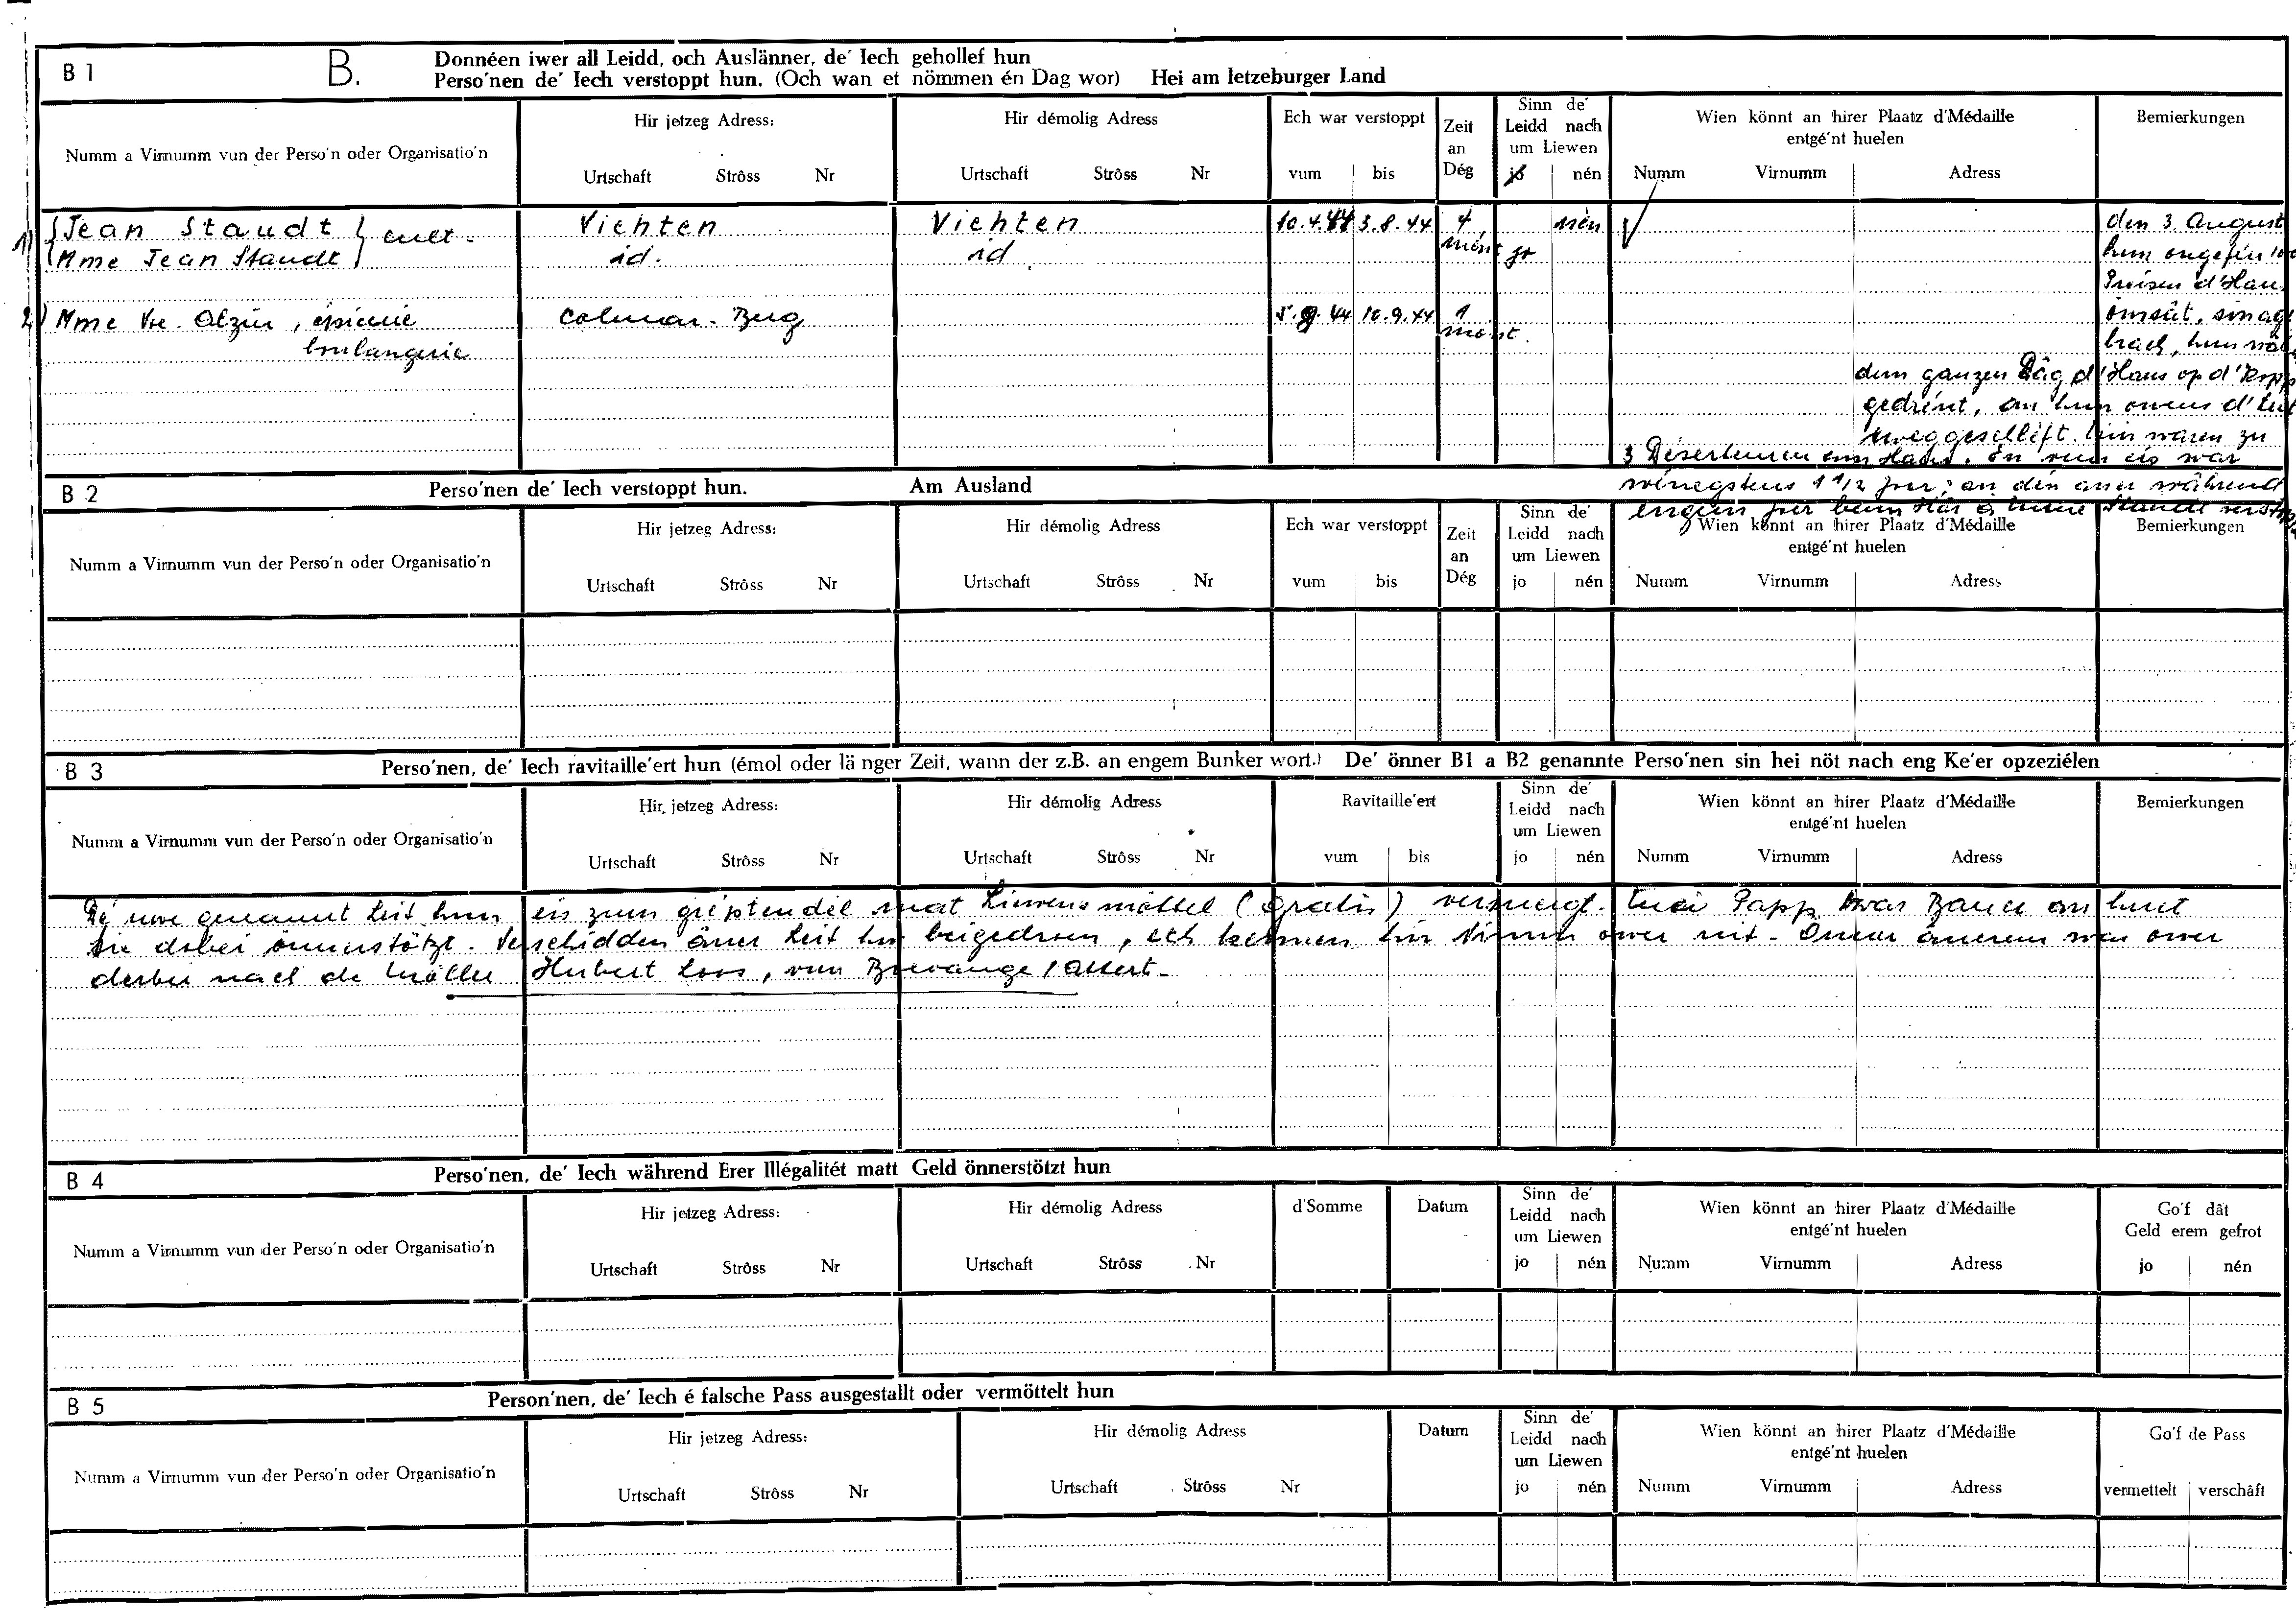 B 1 B. Donnéen iwer all Leidd, och Auslänner, de' Iech gehollef hun
Perso'nen de' Iech verstoppt hun. (Och wan et nömmen én Dag wor) Hei am letzeburger Land
Numm a Virnumm vun der Perso'n oder Organisatio'n
Hir jetzeg Adress:
Urtschaft Strôss Nr
Hir démolig Adress
Urtschaft Strôss Nr
Ech war verstoppt
vum bis
Zeit
an
Dég
Sinn de'
Leidd nach
um Liewen
jo nén
Wien könnt an hirer Plaatz d'Médaille
entgé'nt huelen
Numm Virnumm Adress
Bemierkungen
1) Jean Staudt cult. Vichten Vichten 10.4.44 3.8.44 4 nén
Mme Jean Staudt id. id. mént jo
2) Mme Ve. Olzin, épicerie Colmar-Berg 5.9.44 10.9.44 1
boulangerie
den 3. August
hun ongeféer 100
Preisen d'Haus
brach, hun
dem ganzen Dâg d'Haus op d'Kopp
gedréint, an hun owens d'Leit
3 Déserteuren am Haus. én vun eis war
winegstens 1 1/2 jor, an den aner während
B 2 Perso'nen de' Iech verstoppt hun. Am Ausland
Numm a Virnumm vun der Perso'n oder Organisatio'n
Hir jetzeg Adress:
Urtschaft Strôss Nr
Hir démolig Adress
Urtschaft Strôss Nr
Ech war verstoppt
vum bis
Zeit
an
Dég
Sinn de'
Leidd nach
um Liewen
jo nén
Wien könnt an hirer Plaatz d'Médaille
entgé'nt huelen
Numm Virnumm Adress
Bemierkungen
B 3 Perso'nen, de' Iech ravitaille'ert hun (émol oder länger Zeit, wann der z.B. an engem Bunker wort.) De' önner B1 a B2 genannte Perso'nen sin hei nöt nach eng Ke'er opzeziélen
Numm a Virnumm vun der Perso'n oder Organisatio'n
Hir jetzeg Adress:
Urtschaft Strôss Nr
Hir démolig Adress
Urtschaft Strôss Nr
Ravitaille'ert
vum bis
Sinn de'
Leidd nach
um Liewen
jo nén
Wien könnt an hirer Plaatz d'Médaille
entgé'nt huelen
Numm Virnumm Adress
Bemierkungen
Dé uwe genannt Leit hun eis zum gréistendél mat Liewensmöttel (gratis) versuergt. Mei Papp war Bauer an huet
sie dobei önnerstötzt. Verschidden aner Leit hu beigedroen, ech kennen hir Nimm awer nit. Önner anerem war awer
derbei nach de Möller Hubert Loos, vun Boevange/Attert.
B 4 Perso'nen, de' Iech während Erer Illégalitét matt Geld önnerstötzt hun
Numm a Virnumm vun der Perso'n oder Organisatio'n
Hir jetzeg Adress:
Urtschaft Strôss Nr
Hir démolig Adress
Urtschaft Strôss Nr
d'Somme
Datum
Sinn de'
Leidd nach
um Liewen
jo nén
Wien könnt an hirer Plaatz d'Médaille
entgé'nt huelen
Numm Virnumm Adress
Go'f dât
Geld erem gefrot
jo nén
B 5 Person'nen, de' Iech é falsche Pass ausgestallt oder vermöttelt hun
Numm a Virnumm vun der Perso'n oder Organisatio'n
Hir jetzeg Adress:
Urtschaft Strôss Nr
Hir démolig Adress
Urtschaft Strôss Nr
Datum
Sinn de'
Leidd nach
um Liewen
jo nén
Wien könnt an hirer Plaatz d'Médaille
entgé'nt huelen
Numm Virnumm Adress
Go'f de Pass
vermettelt verschâft